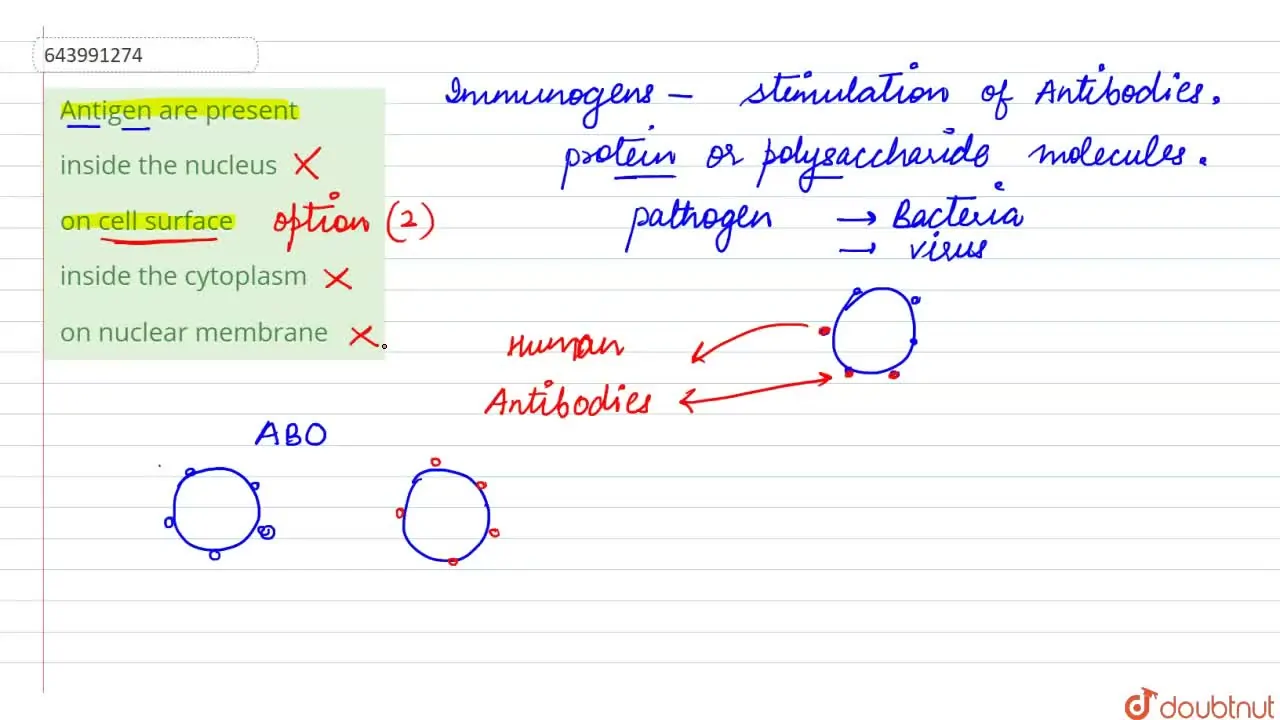 643991274
Antigen are present
inside the nucleus
on cell surface option (2)
inside the cytoplasm
on nuclear membrane
Immunogens - stimulation of Antibodies.
protein or polysaccharide molecules.
pathogen → Bacteria
→ virus
Human
Antibodies
ABO
doubtnut